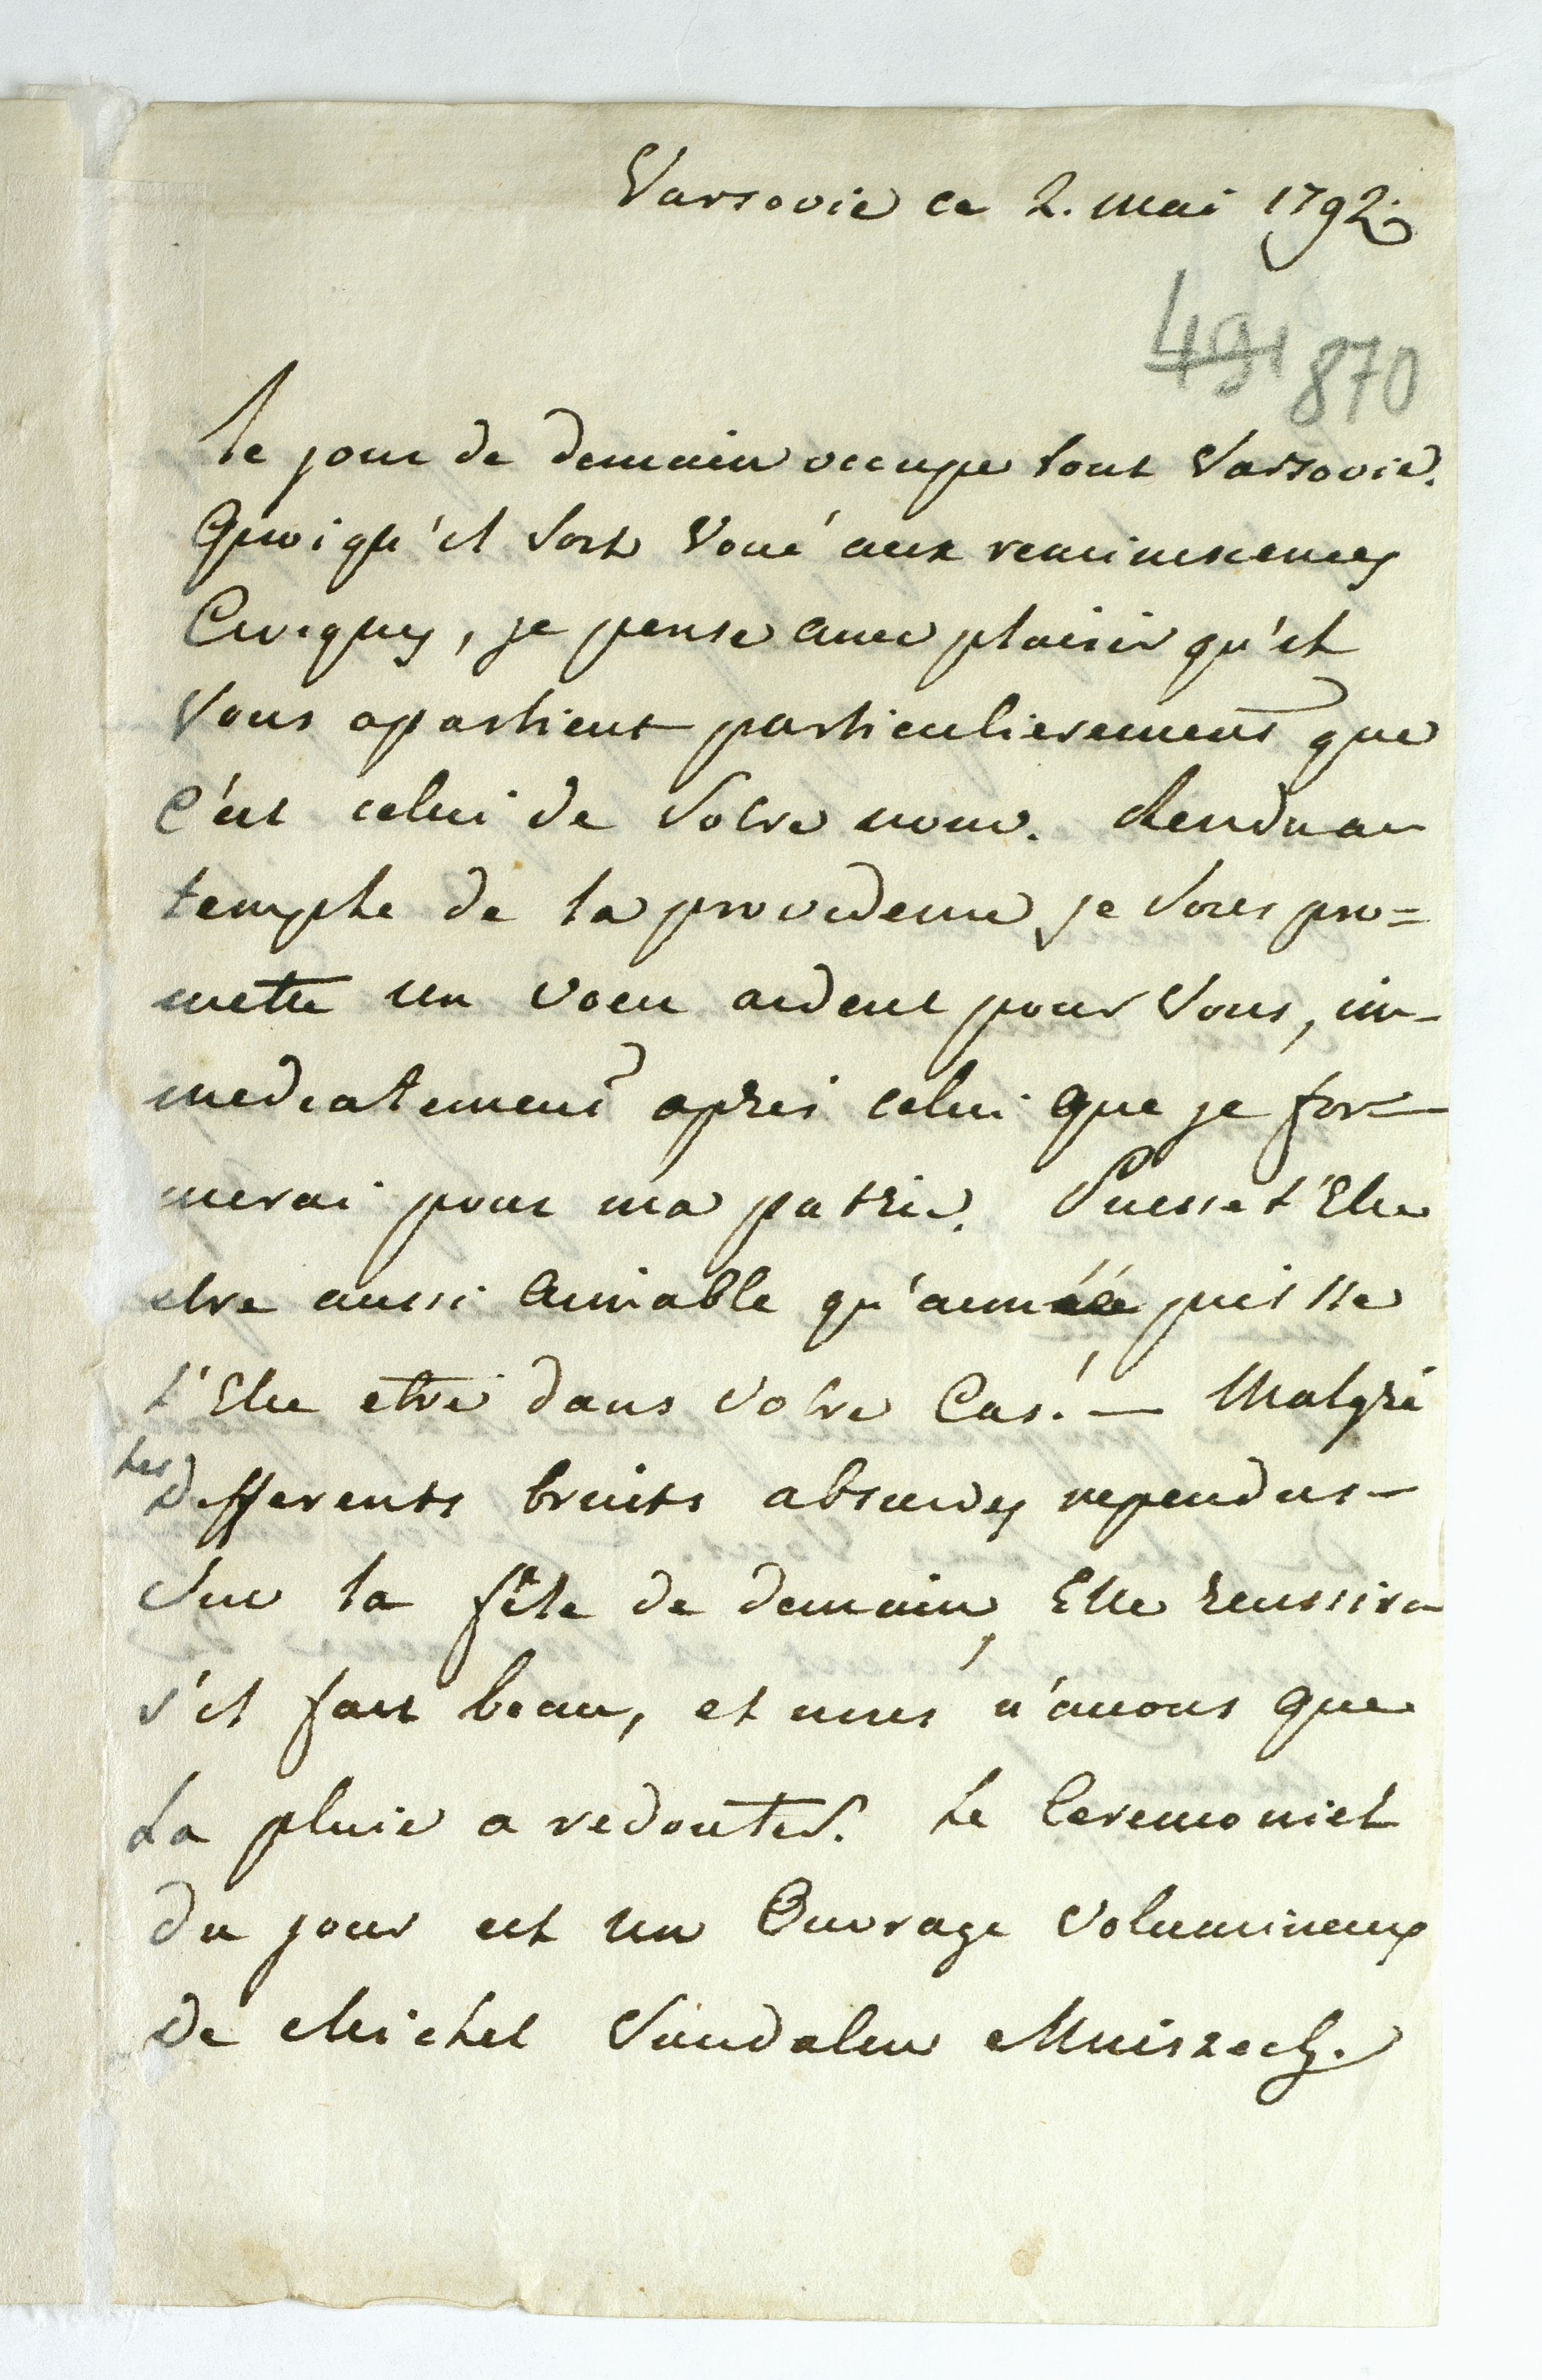 Varsovie ce 2. mai 1792.
491 870
le jour de demain occupe tout Varsovie.
Quoiqu'il soit Voué aux reminiscences
Civiques, je pense avec plaisir qu'il
Vous apartient particulierement que
C'est celui de Votre nom. Rendu au
temple de la providence je Vous pro=
mette un voeu ardent pour Vous, im-
mediatement après celui que je for-
merai pour ma patrie. Puisse t'Elle
etre aussi aimable qu'aimée puisse
t'Elle etre dans Votre Cas! — Malgré
les differents bruits absurdes rependus -
Sur la fête de demain, Elle reussira
s'il fait beau, et nous n'avons que
La pluie a redouter. Le Ceremoniel
du jour est un Ouvrage Volumineux
de Michel Vandalin Mniszech.